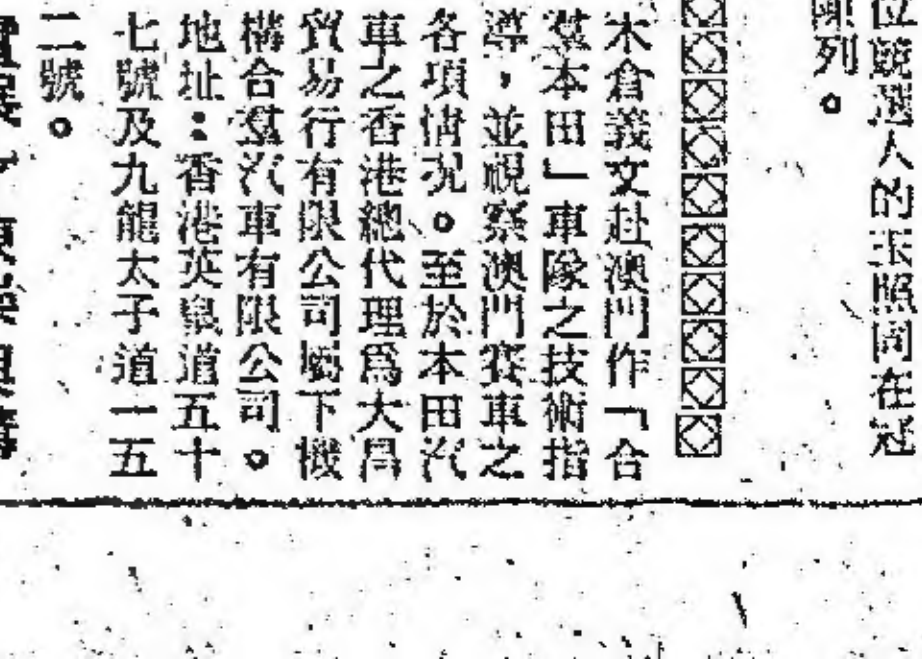 位競選人的玉照同在冠
列。
木倉義文赴澳門作「合
羣本田」車隊之技術指
導，並視察澳門賽車之
各項情況。至於本田汽
車之香港總代理爲大昌
貿易行有限公司屬下機
構合羣汽車有限公司。
地址：香港英皇道五十
七號及九龍太子道一五
二號。